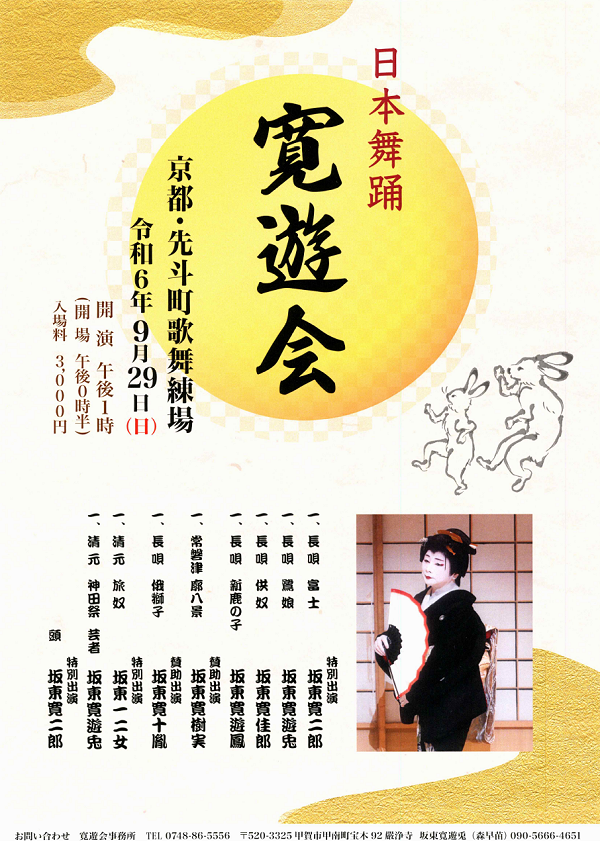 日本舞踊
寛遊会
京都・先斗町歌舞練場
令和6年9月29日(日)
開演 午後1時
(開場 午後0時半)
入場料 3,000円
一、長唄 富士 特別出演 坂東寛二郎
一、長唄 鷺娘 坂東寛遊兎
一、長唄 供奴 坂東寛佳郎
一、長唄 新鹿の子 坂東寛遊鳳
一、常磐津 廓八景 賛助出演 坂東寛樹実
一、長唄 俄獅子 賛助出演 坂東寛十胤
一、清元 旅奴 特別出演 坂東一二女
一、清元 神田祭 芸者 坂東寛遊兎
頭 特別出演 坂東寛二郎
お問い合わせ 寛遊会事務所 TEL 0748-86-5556 〒520-3325 甲賀市甲南町宝木92 巌浄寺 坂東寛遊兎(森早苗) 090-5666-4651